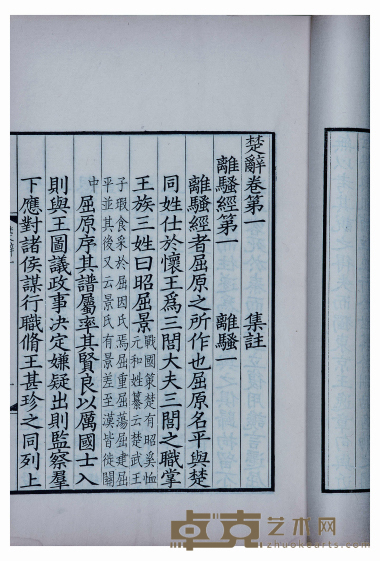 楚辭卷第一 集註
離騷經第一 離騷一
離騷經者屈原之所作也屈原名平與楚
同姓仕於懷王爲三閭大夫三閭之職掌
王族三姓曰昭屈景戰國策楚有昭奚恤
元和姓纂云楚武王
子瑕食采於屈因氏焉屈重屈蕩屈建屈
平並其後又云景氏有景差至漢皆徙關
中屈原序其譜屬率其賢良以厲國士入
則與王圖議政事决定嫌疑出則監察羣
下應對諸侯謀行職脩王甚珍之同列上
卓克艺术网
zhuokearts.com